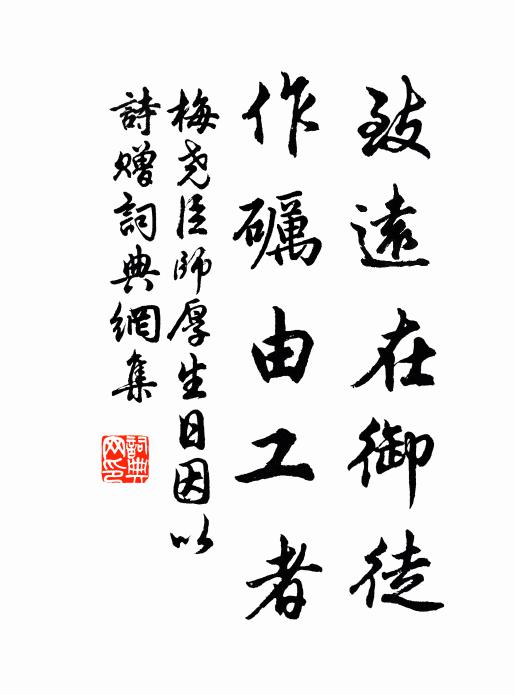 致遠在御徒
作礪由工者
梅尧臣師厚生日因以
詩贈詞典網集
詞典网印